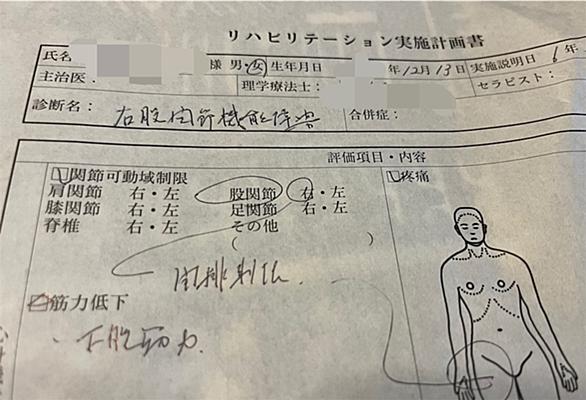 リハビリテーション実施計画書
氏名 様 男・女 生年月日 年12月13日 実施説明日 6年
主治医: 理学療法士: セラピスト:
診断名: 右股関節機能障害 合併症:
評価項目・内容
関節可動域制限 疼痛
肩関節 右・左 股関節 右・左
膝関節 右・左 足関節 右・左
脊椎 右・左 その他
( )
筋力低下
下肢筋力